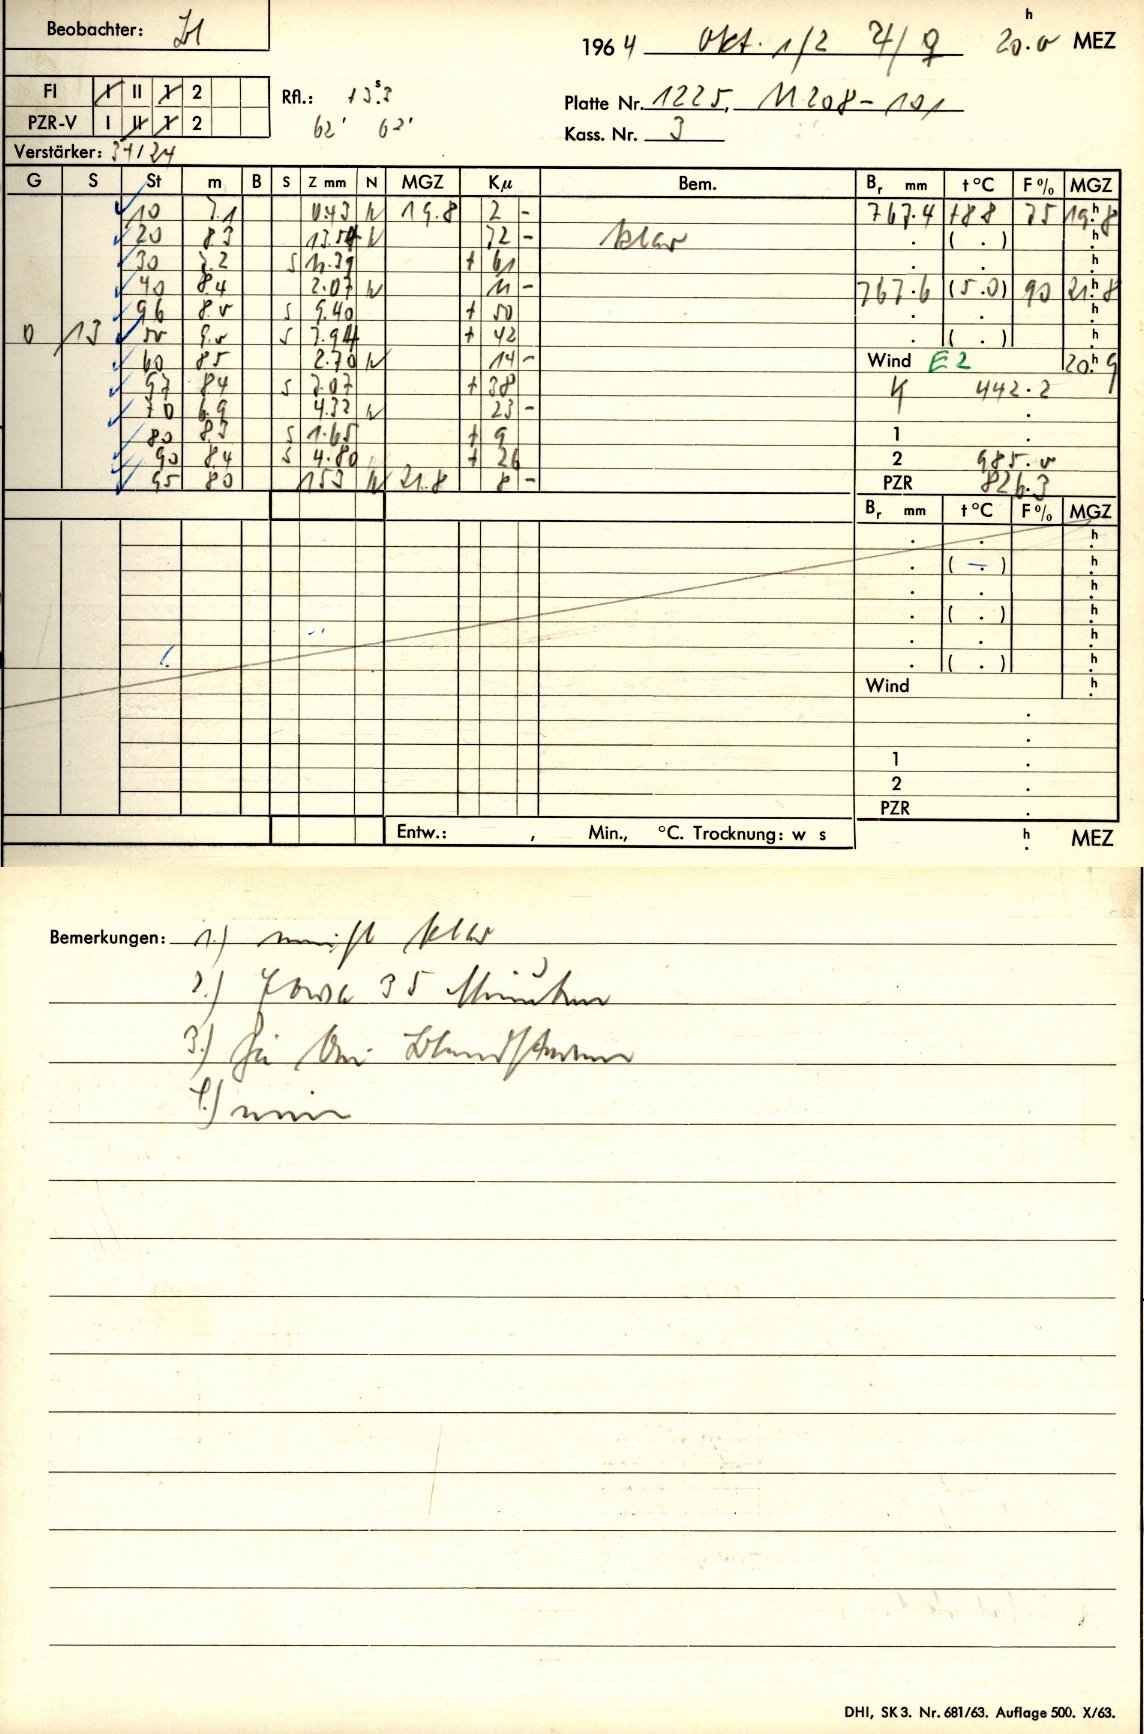 Beobachter:
1964 Okt. 1/2 ♃/♀ 20.0 h MEZ
FI I II 1 2
PZR-V I II 1 2
Rfl.: +3.3 s
62' 62'
Platte Nr. 1225, M208-101
Kass. Nr. 3
Verstärker: 34/24
G S St m B S Z mm N MGZ Kμ Bem. Br mm t°C F% MGZ
10 7.1 0.43 N 19.8 2 - 767.4 +8.8 75 19.h8
20 8.3 13.54 N 72 - klar . ( . ) h
30 7.2 S 11.39 + 61 . . h
40 8.4 2.07 N 11 - 767.6 (5.0) 90 21.h8
96 8.0 S 9.40 + 50 . . h
0 13 50 9.0 S 7.94 + 42 . ( . ) h
60 8.5 2.70 N 14 - Wind E2 20.h9
97 8.4 S 7.07 + 38 442.2
70 6.9 4.32 N 23 - .
80 8.3 S 1.65 + 9 1 .
90 8.4 S 4.80 + 26 2 985.0
95 8.0 1.53 N 21.8 8 - PZR 826.3
Br mm t°C F% MGZ
. . h
. ( . ) h
. . h
. ( . ) h
. . h
. ( . ) h
Wind h
.
.
1 .
2 .
PZR .
Entw.: , Min., °C. Trocknung: w s h MEZ
Bemerkungen: 1.) meist klar
2.) Etwa 35 Minuten
3.) Ja bei Blendsternen
4.) nein
DHI, SK 3. Nr. 681/63. Auflage 500. X/63.